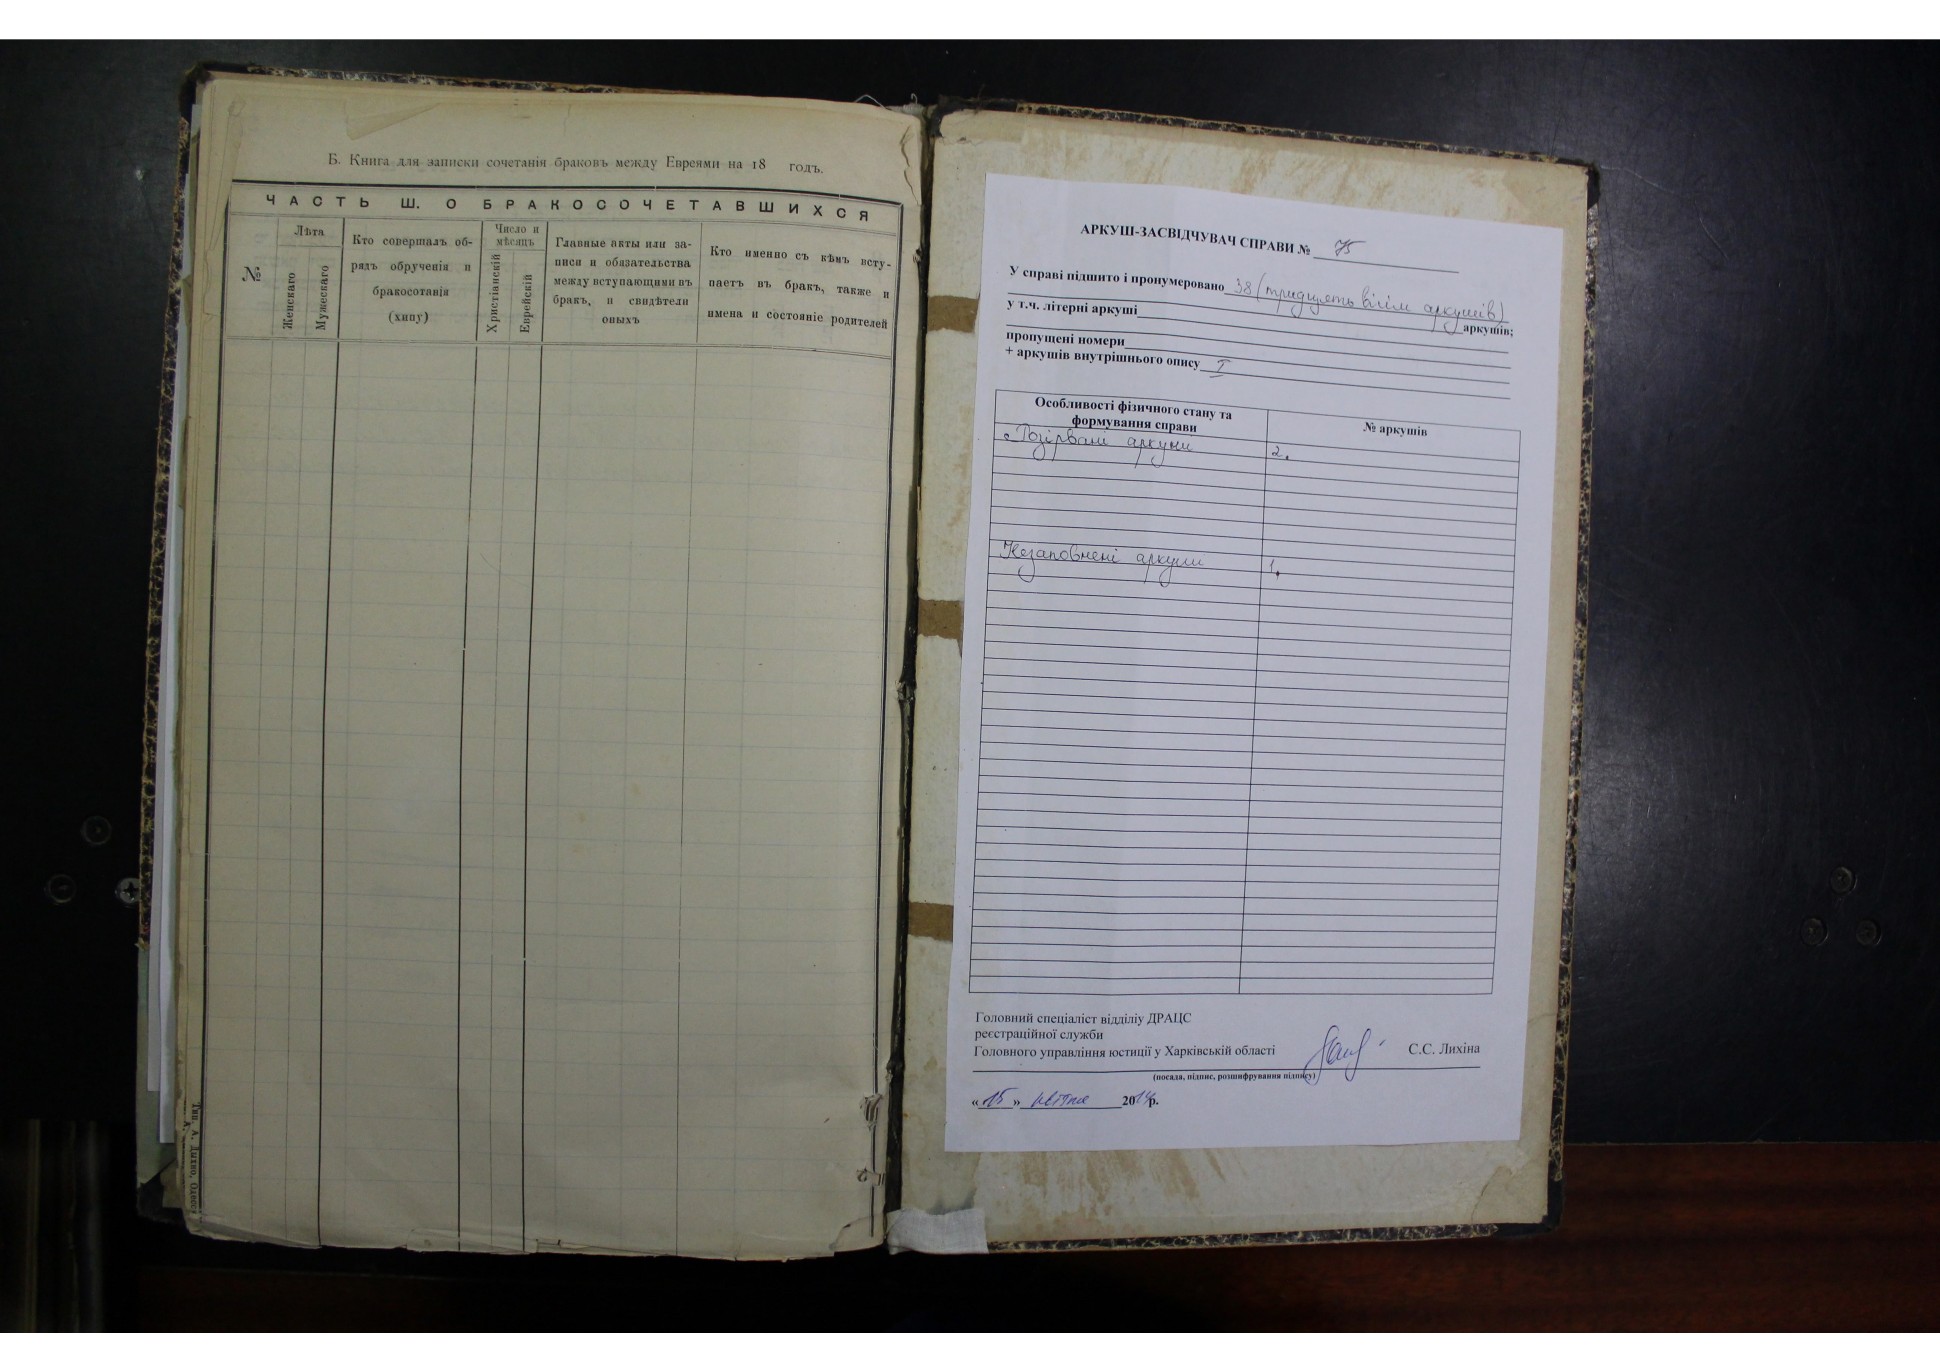 Б. Книга для записки сочетанія браковъ между Евреями на 18 годъ.
ЧАСТЬ Ш. О БРАКОСОЧЕТАВШИХСЯ
№
Лѣта
Женскаго
Мужескаго
Кто совершалъ об-
рядъ обрученія и
бракосотанія
(хипу)
Число и
мѣсяцъ
Христіанскій
Еврейскій
Главные акты или за-
писи и обязательства
между вступающими въ
бракъ, и свидѣтели
оныхъ
Кто именно съ кѣмъ всту-
паетъ въ бракъ, также и
имена и состояніе родителей
Тип. А. Дыхно, Одесса
АРКУШ-ЗАСВІДЧУВАЧ СПРАВИ № 75
У справі підшито і пронумеровано 38 (тридцять вісім аркушів)
аркушів;
у т.ч. літерні аркуші
пропущені номери
+ аркушів внутрішнього опису I
Особливості фізичного стану та
формування справи
№ аркушів
Розірвані аркуші 2.
Незаповнені аркуші 1.
Головний спеціаліст відділу ДРАЦС
реєстраційної служби
Головного управління юстиції у Харківській області С.С. Лихіна
(посада, підпис, розшифрування підпису)
«15» квітня 2014р.